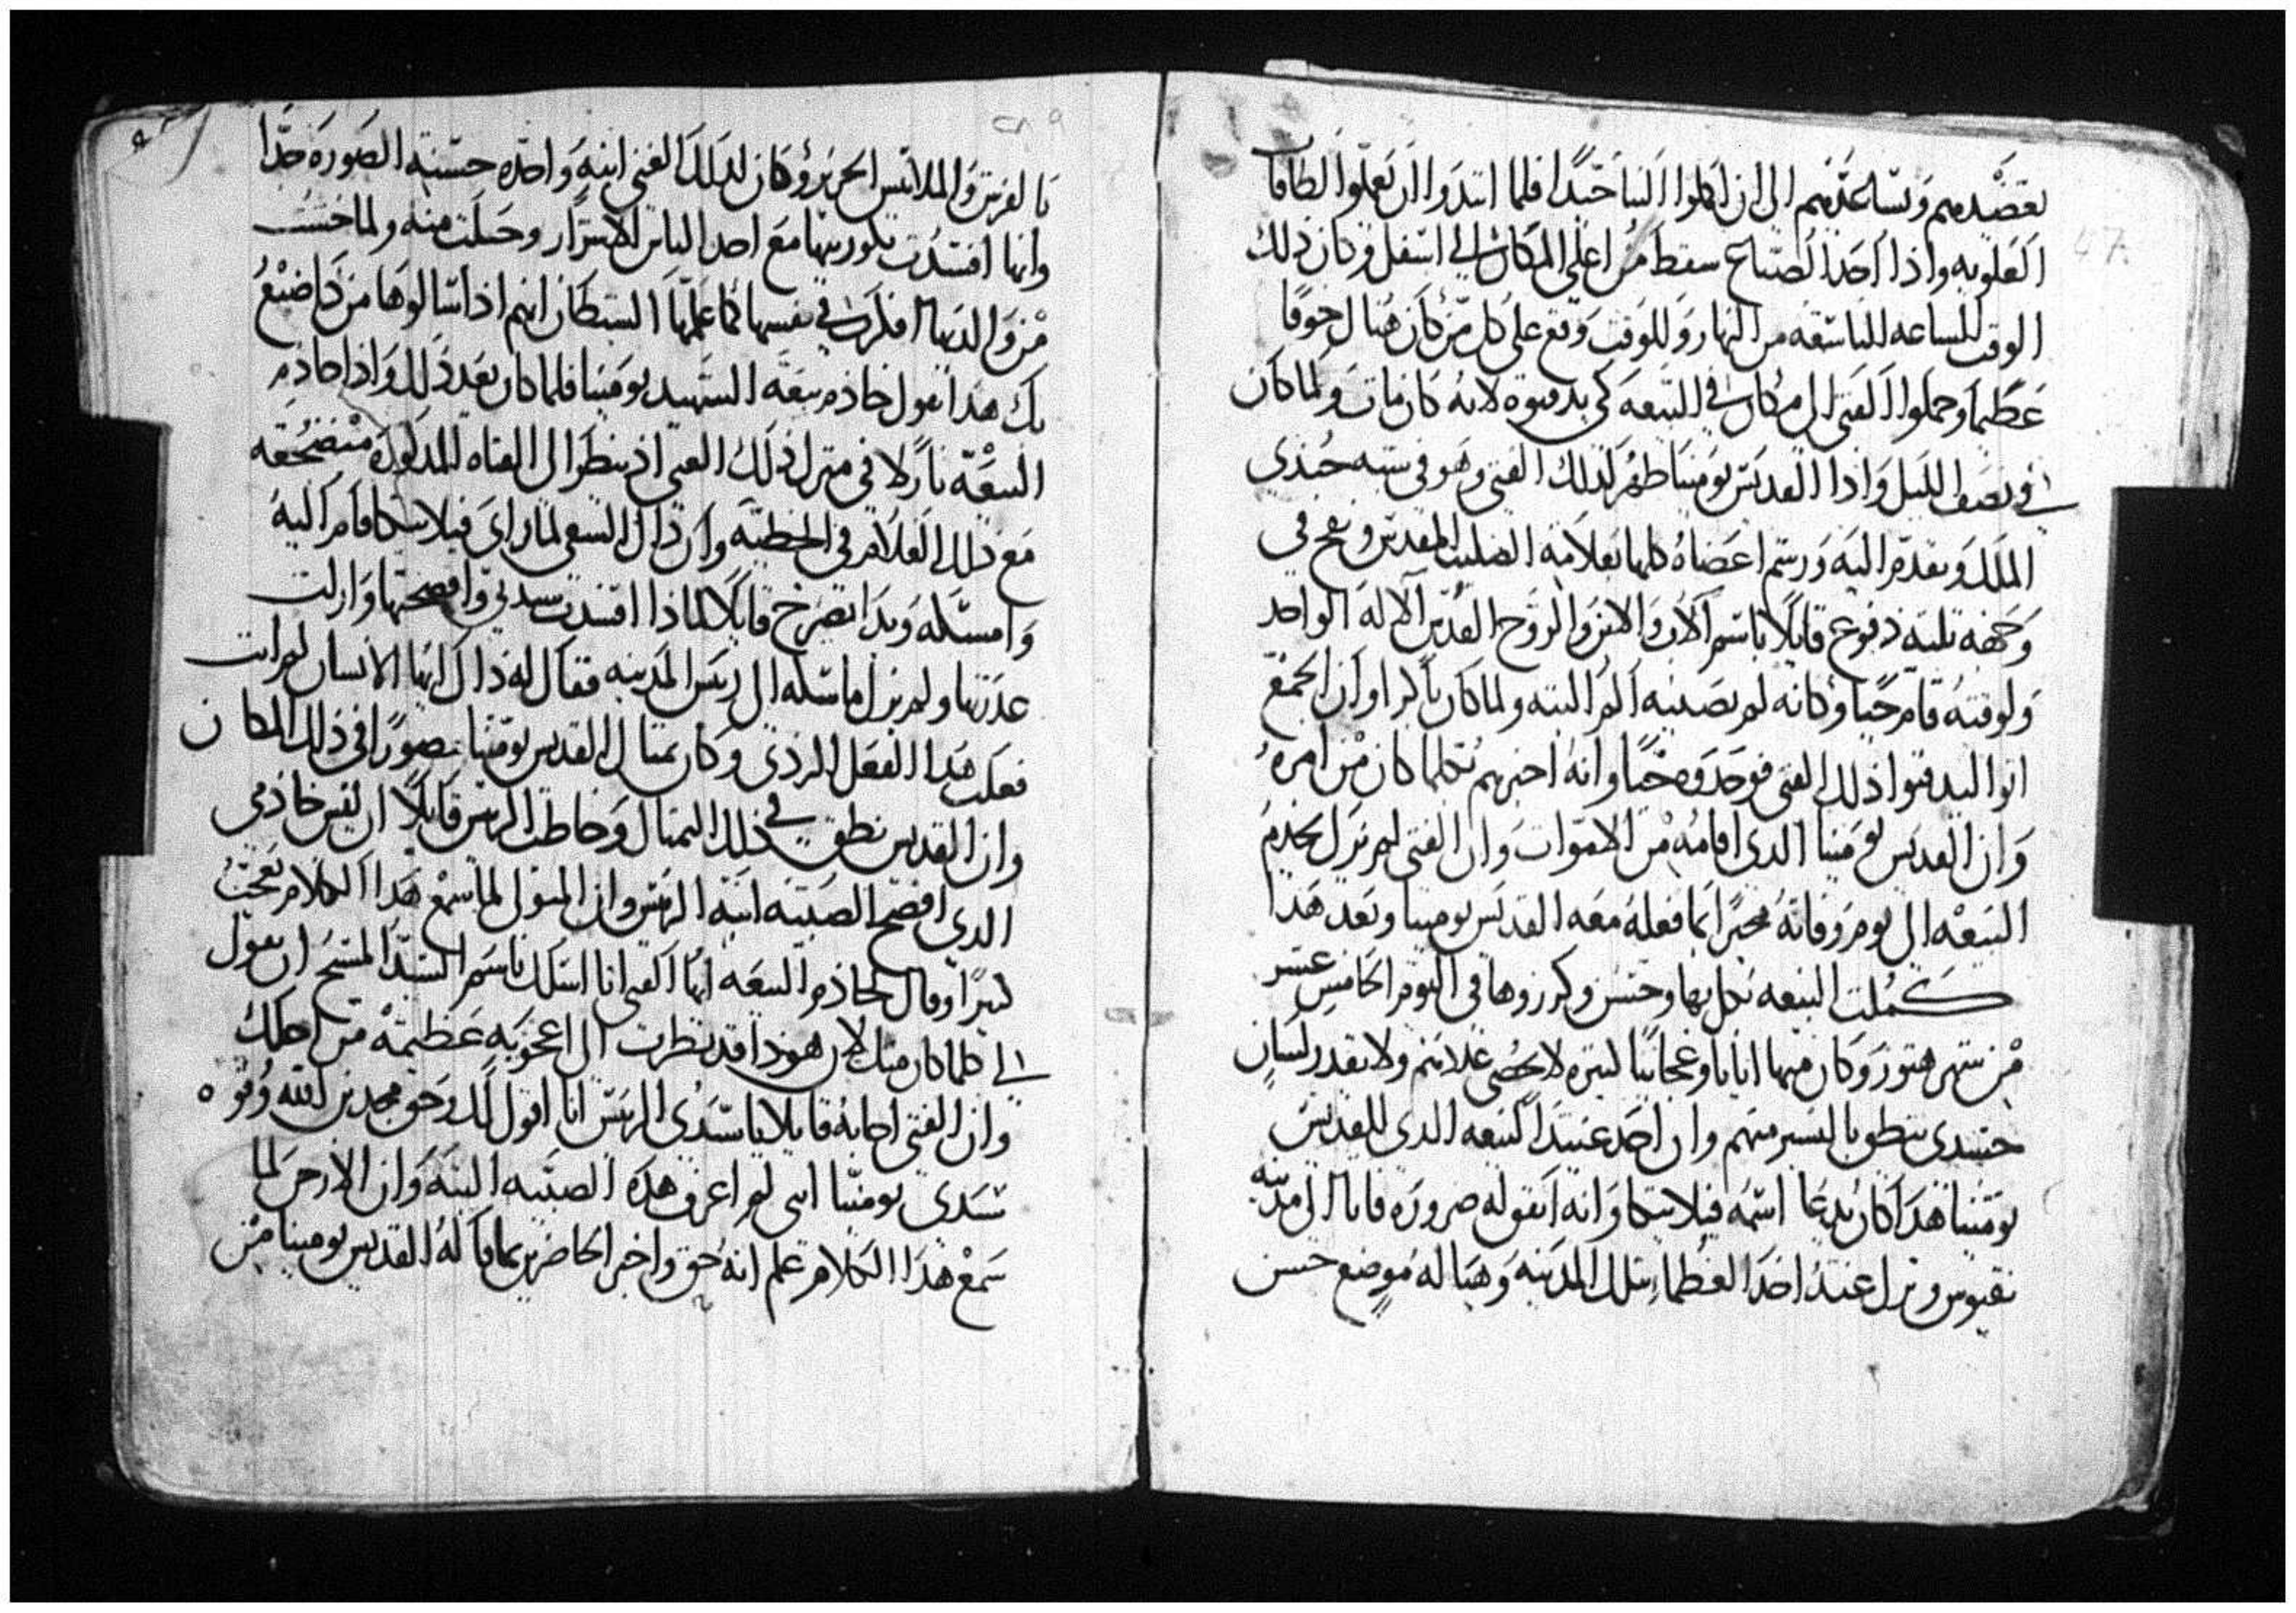 47
بعضدهم ويساعدهم الي ان اكملوا البنا جيدًا فلما ابتدوا ان يعملوا الطاقات
العلويه واذا احد الصناع سقط من اعلي المكان الي اسفل وكان ذلك
الوقت الساعه التاسعه من النهار وللوقت وقع علي كل من كان هناك خوفًا
عظيمًا وحملوا الفتي الي مكان في البيعه كي يدفنوه لانه كان مات ولما كان
في نصف الليل واذا القديس يومينا ظهر لذلك الفتي وهو في شبه جندي
الملك وتقدم اليه ورسم اعضاه كلها بعلامه الصليب المقدس ونفخ في
وجهه ثلثه دفوع قايلًا باسم الاب والابن والروح القدس الاله الواحد
ولوقته قام حيًا وكانه لم يصيبه الم البته ولما كان باكرا وان الجمع
اتوا ليدفنوا ذلك الفتي فوجدوه حيًا وانه اخبرهم بكلما كان من امره
وان القديس يومينا الدي اقامه من الاموات وان الفتي لم يزل يخدم
البيعه الي يوم وفاته مخبرًا بما فعله معه القديس يومينا وبعد هدا
كملت البيعه بكل بها وحسن وكرزوها في اليوم الخامس عشر
من شهر هتور وكان منها اياتا وعجايبًا كتيره لا تحصي علانيه ولا يقدر لسان
جسدي ينطق باليسير منهم وان احد عبيد البيعه الدي للقديس
يومينا هدا كان يدعا اسمه فيلاتكا وانه اتفق له ضروره فاتا الي مدينه
نقيوس ونزل عند احد العظما بتلك المدينه وهيا له موضع حسن
بالفرش والملابس الحرير وكان لذلك الغني ابنه واحده حسنه الصوره جدًا
وانها افسدت بكوريتها مع احد الناس الاشرار وحبلت منه ولما خشيت
من والديها افكرت في نفسها كما علمها الشيطان انهم اذا سالوها من ذا صنع
بك هدا تقول خادم بيعه الشهيد يومينا فلما كان بعد ذلك واذا خادم
البيعه نازلا في منزل ذلك الغني اذ ينظر الي الفتاه المدكوره منضجعه
مع ذلك الغلام في الخطيه وان ذاك الشقي لما راي فيلاتكا قام اليه
وامسكه وبدا يصرخ قايلًا لماذا افسدت سيدتي وافضحتها وازلت
عدرتها ولم يزل ماسكه الي ريس المدينه فقال له ذاك ايها الانسان لم انت
فعلت هدا الفعل الردي وكان تمتال القديس يومينا مصورًا في ذلك المكان
وان القديس نطق في ذلك التمتال وخاطب الريس قايلًا ان ليس خادمي
الدي افضح الصبيه ابنه الريس وان المتولي لما سمع هدا الكلام تعجب
كتيرًا وقال لخادم البيعه ايها الفتي انا اسلك باسم السيد المسيح ان تقول
لي كلما كان منك لان هوذا قد نظرت الي اعجوبه عظيمه من اجلك
وان الفتي اجابه قايلا يا سيدي الريس انا اقول لك وحق مجد بن الله وقوه
سيدي يومينا انني لم اعرف هده الصبيه البته وان الارخن لما
سمع هدا الكلام علم انه حق واخبر الحاضرين بما قاله القديس يومينا من